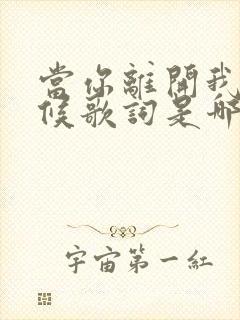 當你離開我
候歌詞是哪
宇宙第一紅